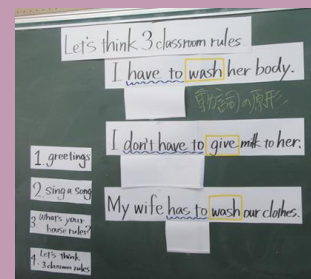 Let's think 3 classroom rules
I have to wash her body.
動詞の原形
I don't have to give milk to her.
My wife has to wash our clothes.
1. greetings
2. sing a song
3 What's your
house rules?
4 Let's think
3 classroom rules